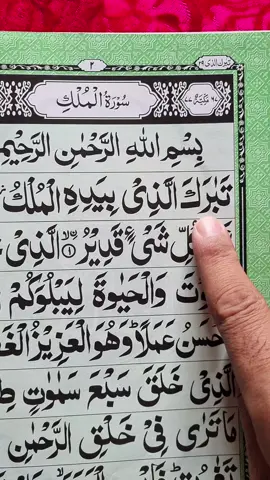 تبرك الذی ۲۹
۲
سُوْرَةُ الْمُلْكِ
بِسْمِ اللهِ الرَّحْمٰنِ الرَّحِيْمِ
تَبٰرَكَ الَّذِیْ بِيَدِهِ الْمُلْكُ
شَیْءٍ قَدِيْرُ ۙ﴿۱﴾ الَّذِیْ
وَالْحَيٰوةَ لِيَبْلُوَكُمْ
عَمَلًا ؕ وَهُوَ الْعَزِيْزُ
الَّذِیْ خَلَقَ سَبْعَ سَمٰوٰتٍ
مَا تَرٰی فِیْ خَلْقِ الرَّحْمٰنِ